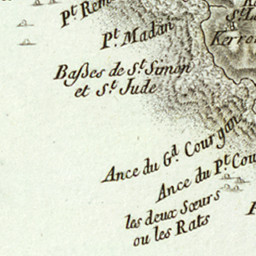 Pt. Madan
Baßes de St. Simon
et St. Jude
Ance du Gd. Courgan
Ance du Pt. Cou
les deux Sœurs
ou les Rats